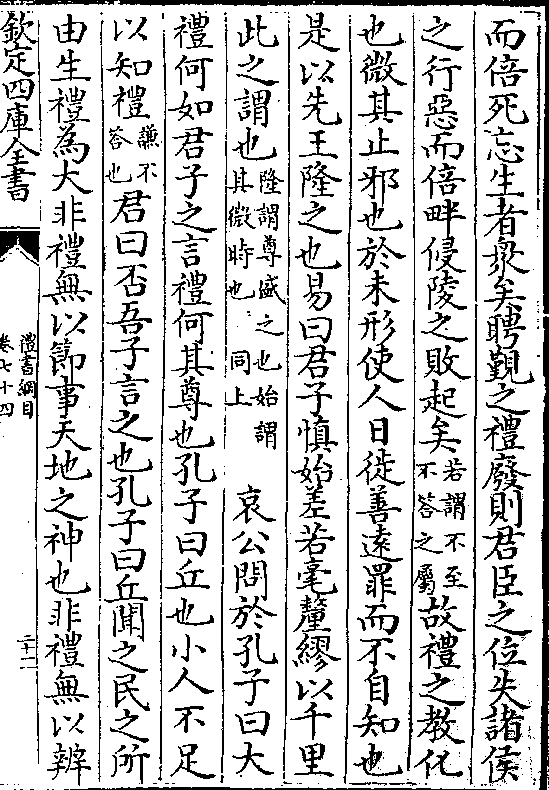 而倍死忘生者衆矣聘覲之禮廢則君臣之位失諸侯
之行惡而倍畔侵陵之敗起矣若謂不至不答之屬故禮之教化
也微其止邪也於未形使人日徙善遠罪而不自知也
是以先王隆之也易曰君子慎始差若毫釐繆以千里
此之謂也隆謂尊盛之也始謂其微時也 同上 哀公問於孔子曰大
禮何如君子之言禮何其尊也孔子曰丘也小人不足
以知禮謙不答也君曰否吾子言之也孔子曰丘聞之民之所
由生禮為大非禮無以節事天地之神也非禮無以辨
欽定四庫全書
禮書綱目
卷七十四
二十一